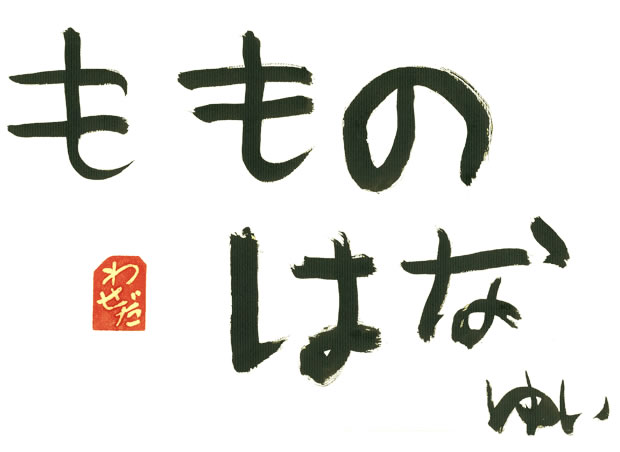 ももの
はな
ゆい
わせだ